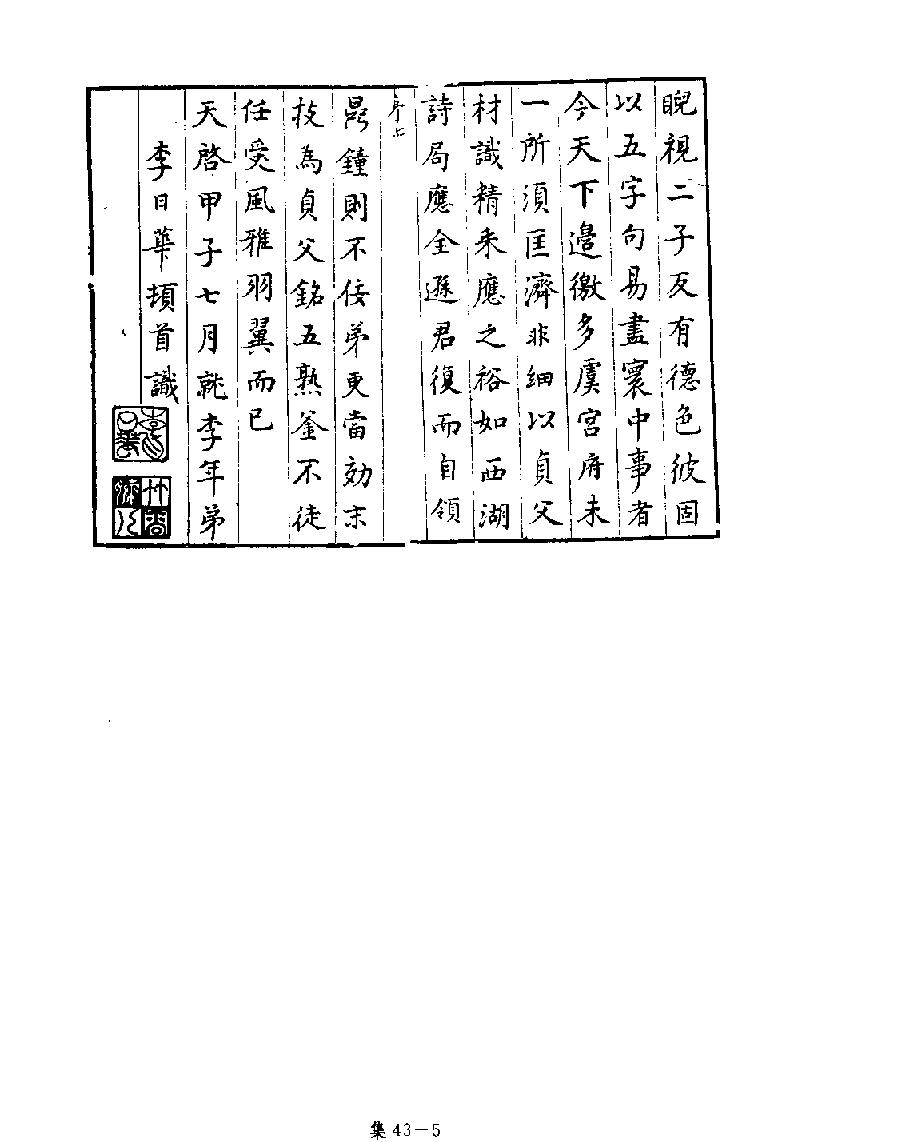 睨視二子反有德色彼固
以五字句易盡寰中事者
今天下邉徼多虞宮府未
一所須匡濟非細以貞父
材識精来應之裕如西湖
詩局應全遜君復而自領
序
晁鐘則不佞弟更當効末
技為貞父銘五熟釜不徒
任受風雅羽翼而已
天啓甲子七月就李年弟
李日華頓首識
集 43－5